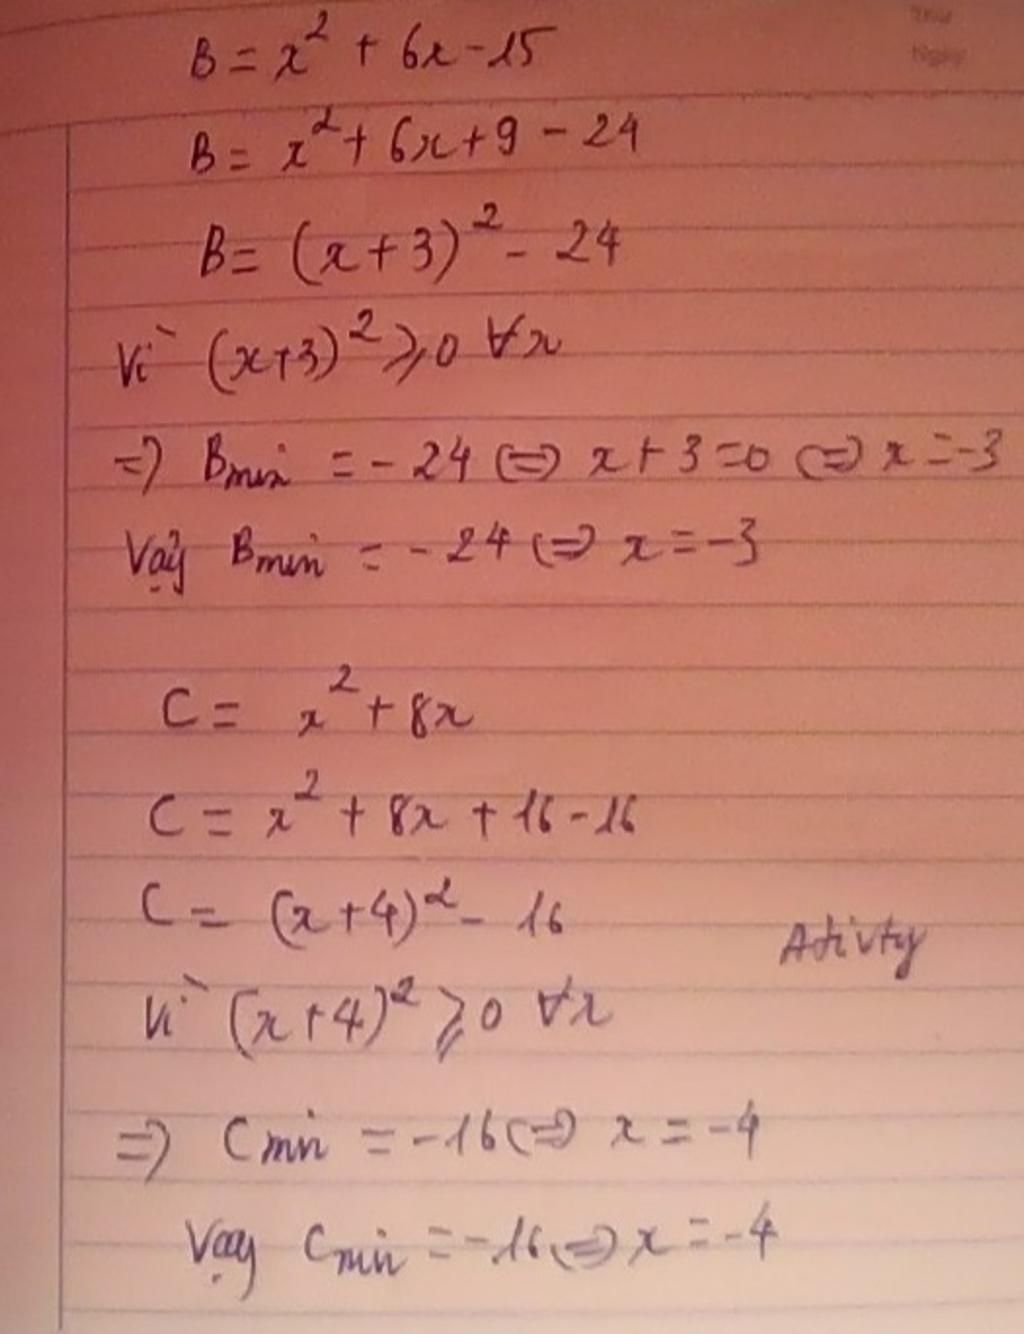 Thứ
Ngày
B = x² + 6x - 15
B = x² + 6x + 9 - 24
B = (x + 3)² - 24
Vì (x+3)² ⩾ 0 ∀x
=> Bmin = - 24 <=> x + 3 = 0 <=> x = -3
Vậy Bmin = - 24 <=> x = -3
C = x² + 8x
C = x² + 8x + 16 - 16
C = (x + 4)² - 16
Vì (x + 4)² ⩾ 0 ∀x
=> Cmin = -16 <=> x = -4
Vậy Cmin = -16 <=> x = -4